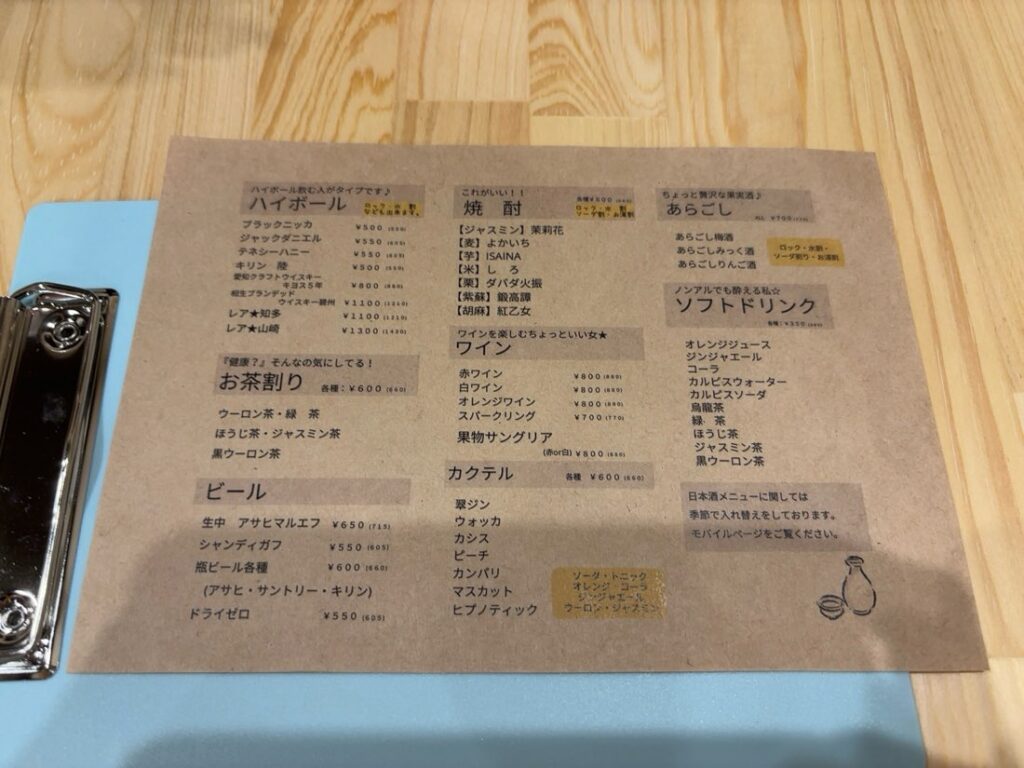 ハイボール飲む人がタイプです♪
ハイボール
ロック・水 割
なども出来ます。
ブラックニッカ ¥500 (550)
ジャックダニエル ¥550 (605)
テネシーハニー ¥550 (605)
キリン 陸 ¥500 (550)
愛知クラフトウイスキー
キヨス5年 ¥800 (880)
相生ブランデッド
ウイスキー碧州 ¥1100 (1210)
レア★知多 ¥1100 (1210)
レア★山崎 ¥1300 (1430)
『健康？』そんなの気にしてる！
お茶割り 各種：¥600 (660)
ウーロン茶・緑 茶
ほうじ茶・ジャスミン茶
黒ウーロン茶
ビール
生中 アサヒマルエフ ¥650 (715)
シャンディガフ ¥550 (605)
瓶ビール各種 ¥600 (660)
(アサヒ・サントリー・キリン)
ドライゼロ ¥550 (605)
これがいい！！
焼 酎 各種¥600
ロック・水 割
ソーダ割・お湯割
【ジャスミン】茉莉花
【麦】よかいち
【芋】ISAINA
【米】し ろ
【栗】ダバダ火振
【紫蘇】鍛高譚
【胡麻】紅乙女
ワインを楽しむちょっといい女★
ワイン
赤ワイン ¥800 (880)
白ワイン ¥800 (880)
オレンジワイン ¥800 (880)
スパークリング ¥700 (770)
果物サングリア
(赤or白) ¥800 (880)
カクテル 各種 ¥600 (660)
翠ジン
ウォッカ
カシス
ピーチ
カンパリ
マスカット
ヒプノティック
ソーダ・トニック
オレンジ コーラ
ジンジャエール
ウーロン・ジャスミン
ちょっと贅沢な果実酒♪
あらごし ALL ¥700 (770)
あらごし梅酒
あらごしみっく酒
あらごしりんご酒
ロック・水割・
ソーダ割り・お湯割
ノンアルでも酔える私☆
ソフトドリンク
各種：¥350 (385)
オレンジジュース
ジンジャエール
コーラ
カルピスウォーター
カルピスソーダ
烏龍茶
緑 茶
ほうじ茶
ジャスミン茶
黒ウーロン茶
日本酒メニューに関しては
季節で入れ替えをしております。
モバイルページをご覧ください。